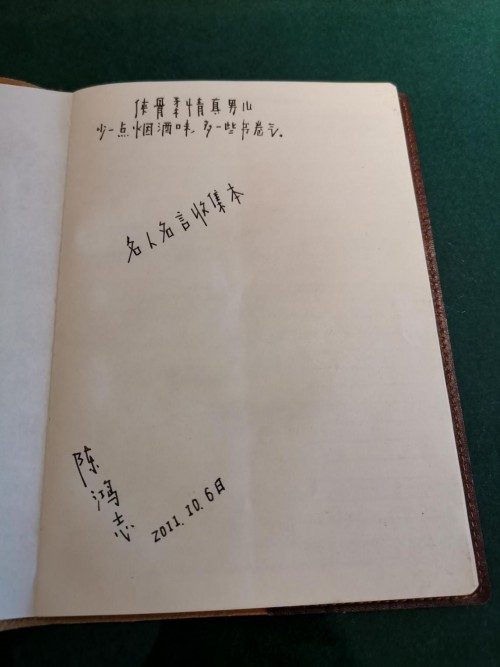 侠骨柔情真男儿
少一点烟酒味,多一些书卷气。
名人名言收集本
陈鸿志
2011.10.6日